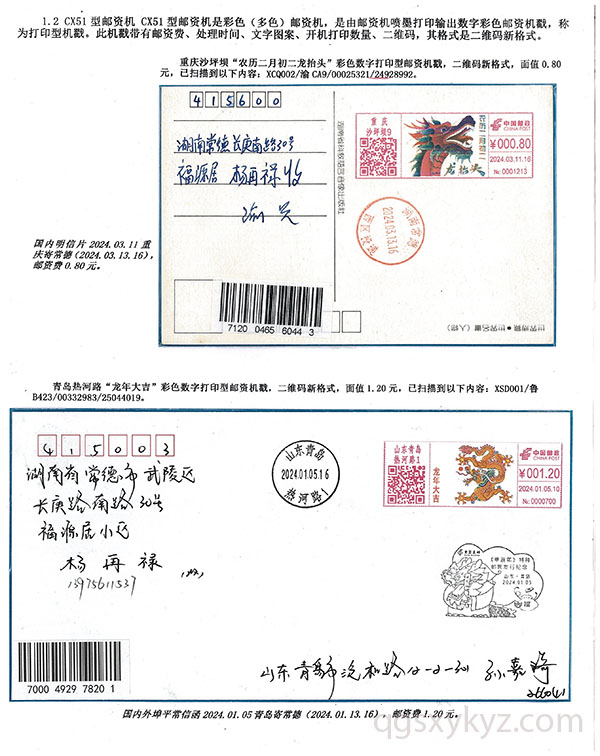 1.2 CX51型邮资机 CX51型邮资机是彩色（多色）邮资机，是由邮资机喷墨打印输出数字彩色邮资机戳，称
为打印型机戳。此机戳带有邮资费、处理时间、文字图案、开机打印数量、二维码，其格式是二维码新格式。
重庆沙坪坝“农历二月初二龙抬头”彩色数字打印型邮资机戳，二维码新格式，面值0.80
元，已扫描到以下内容：XCQ002/渝CA9/00025321/24928992.
415600
湖南常德长庚南路30号
福源居 杨再禄收
湖南省科教语言音像出版社
重庆
沙坪坝9
农历二月初二
龙抬头
中国邮政
CHINA POST
¥000.80
2024.03.11.16
№ 0001213
湖南常德
2024.03.13.16
国内明信片 2024.03.11 重
庆寄常德（2024.03.13.16），
邮资费 0.80 元。
7120 0465 6044 3
世界名画（人物）
青岛热河路“龙年大吉”彩色数字打印型邮资机戳，二维码新格式，面值1.20元，已扫描到以下内容：XSD001/鲁
B423/00332983/25044019。
415003
湖南省常德市武陵区
长庚路南路30号
福源居小区
杨再禄
13975611537
山东青岛
2024.01.05.16
热河路1
山东青岛
热河路1
龙年大吉
中国邮政
CHINA POST
¥001.20
2024.01.05.10
№ 0000700
邮票发行纪念
山东·青岛
2024.01.05
7000 4929 7820 1
国内外埠平常信函 2024.01.05 青岛寄常德（2024.01.13.16），邮资费 1.20 元。
qgsxykyz.com